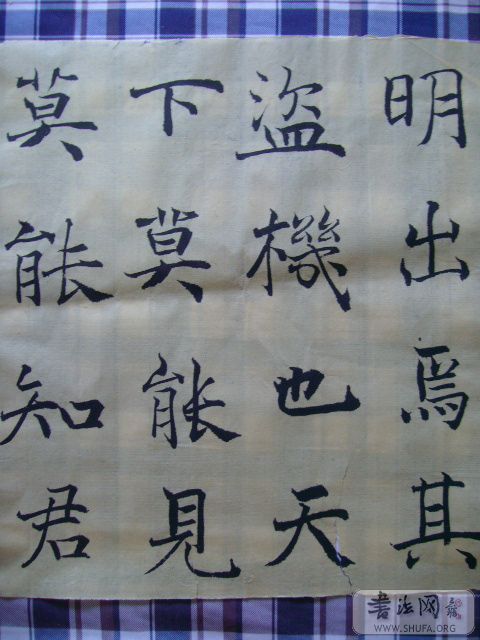 明出焉其
盜機也天
下莫能見
莫能知君
書法网
WWW.SHUFA.ORG